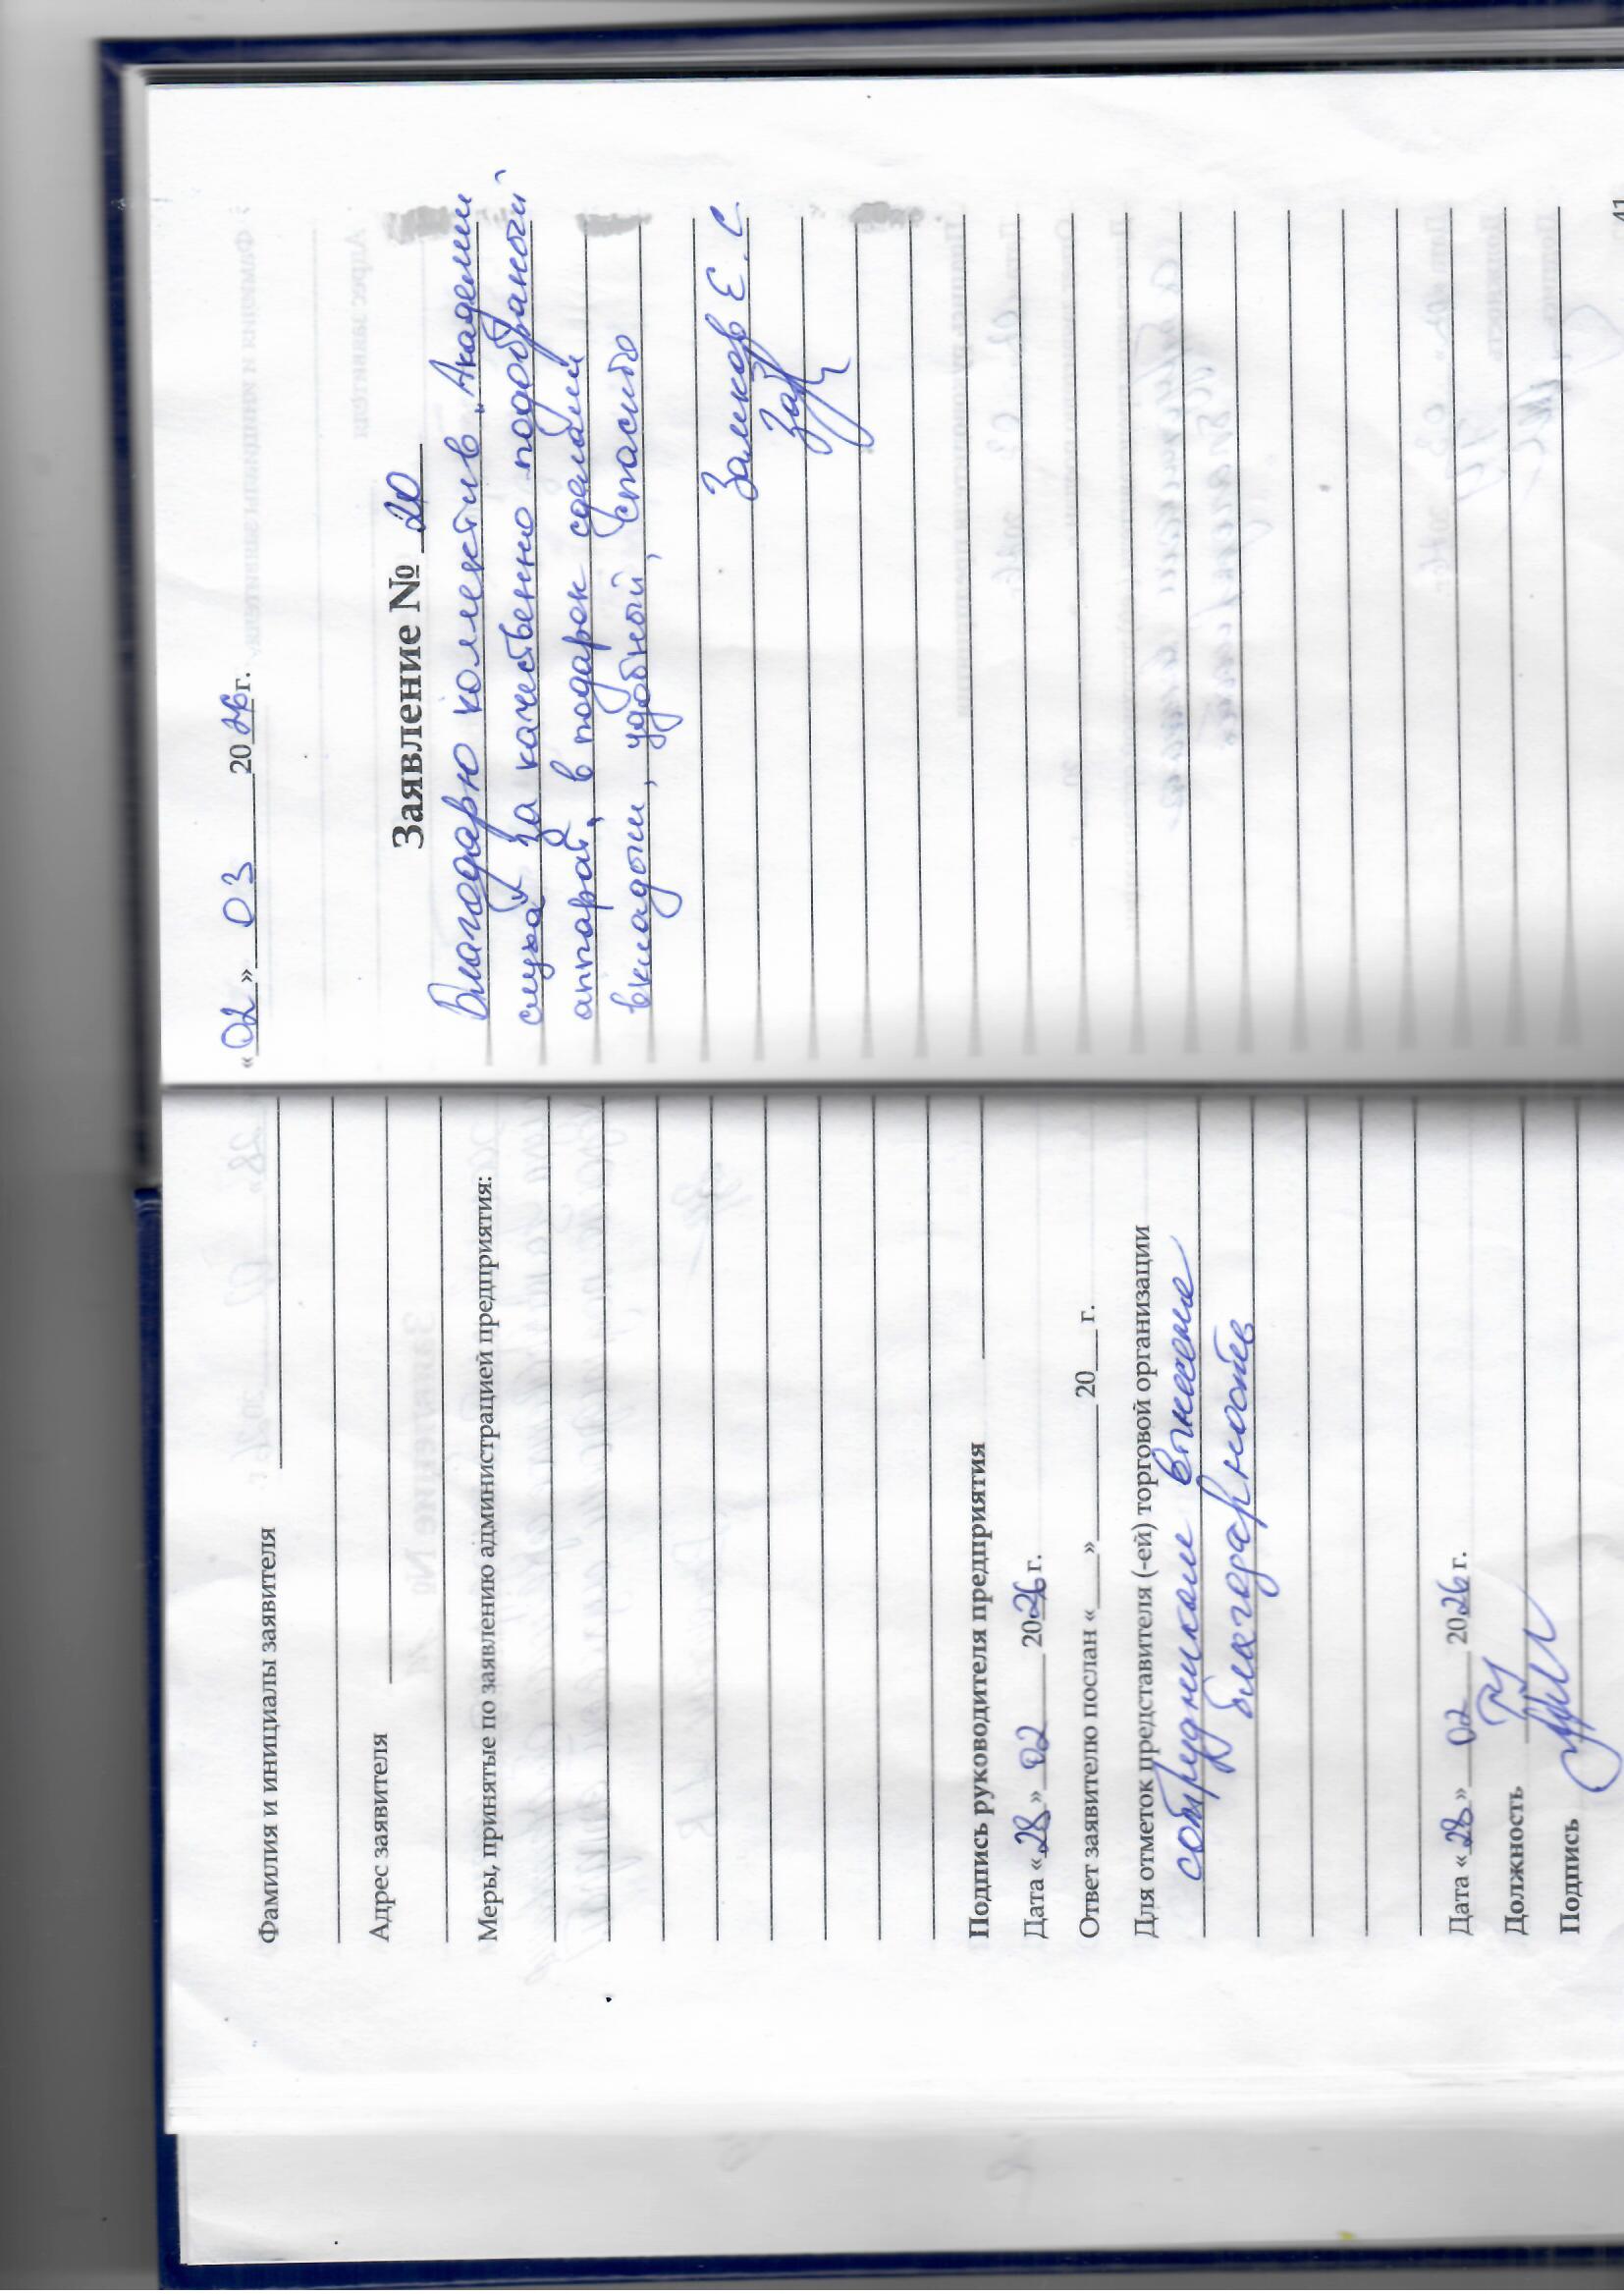 Фамилия и инициалы заявителя
Адрес заявителя
Меры, принятые по заявлению администрацией предприятия:
Подпись руководителя предприятия
Дата «28» 02 2026 г.
Ответ заявителю послан « » 20 г.
Для отметок представителя (-ей) торговой организации
сотрудникам внесена
благодарность
Дата «28» 02 2026 г.
Должность
Подпись
«02» 03 2026 г.
Заявление № 20
Благодарю коллектив „Академии
слуха" за качественно подобранный
аппарат, в подарок сделали
вкладыш, удобный, спасибо
Заиков Е. С.
41